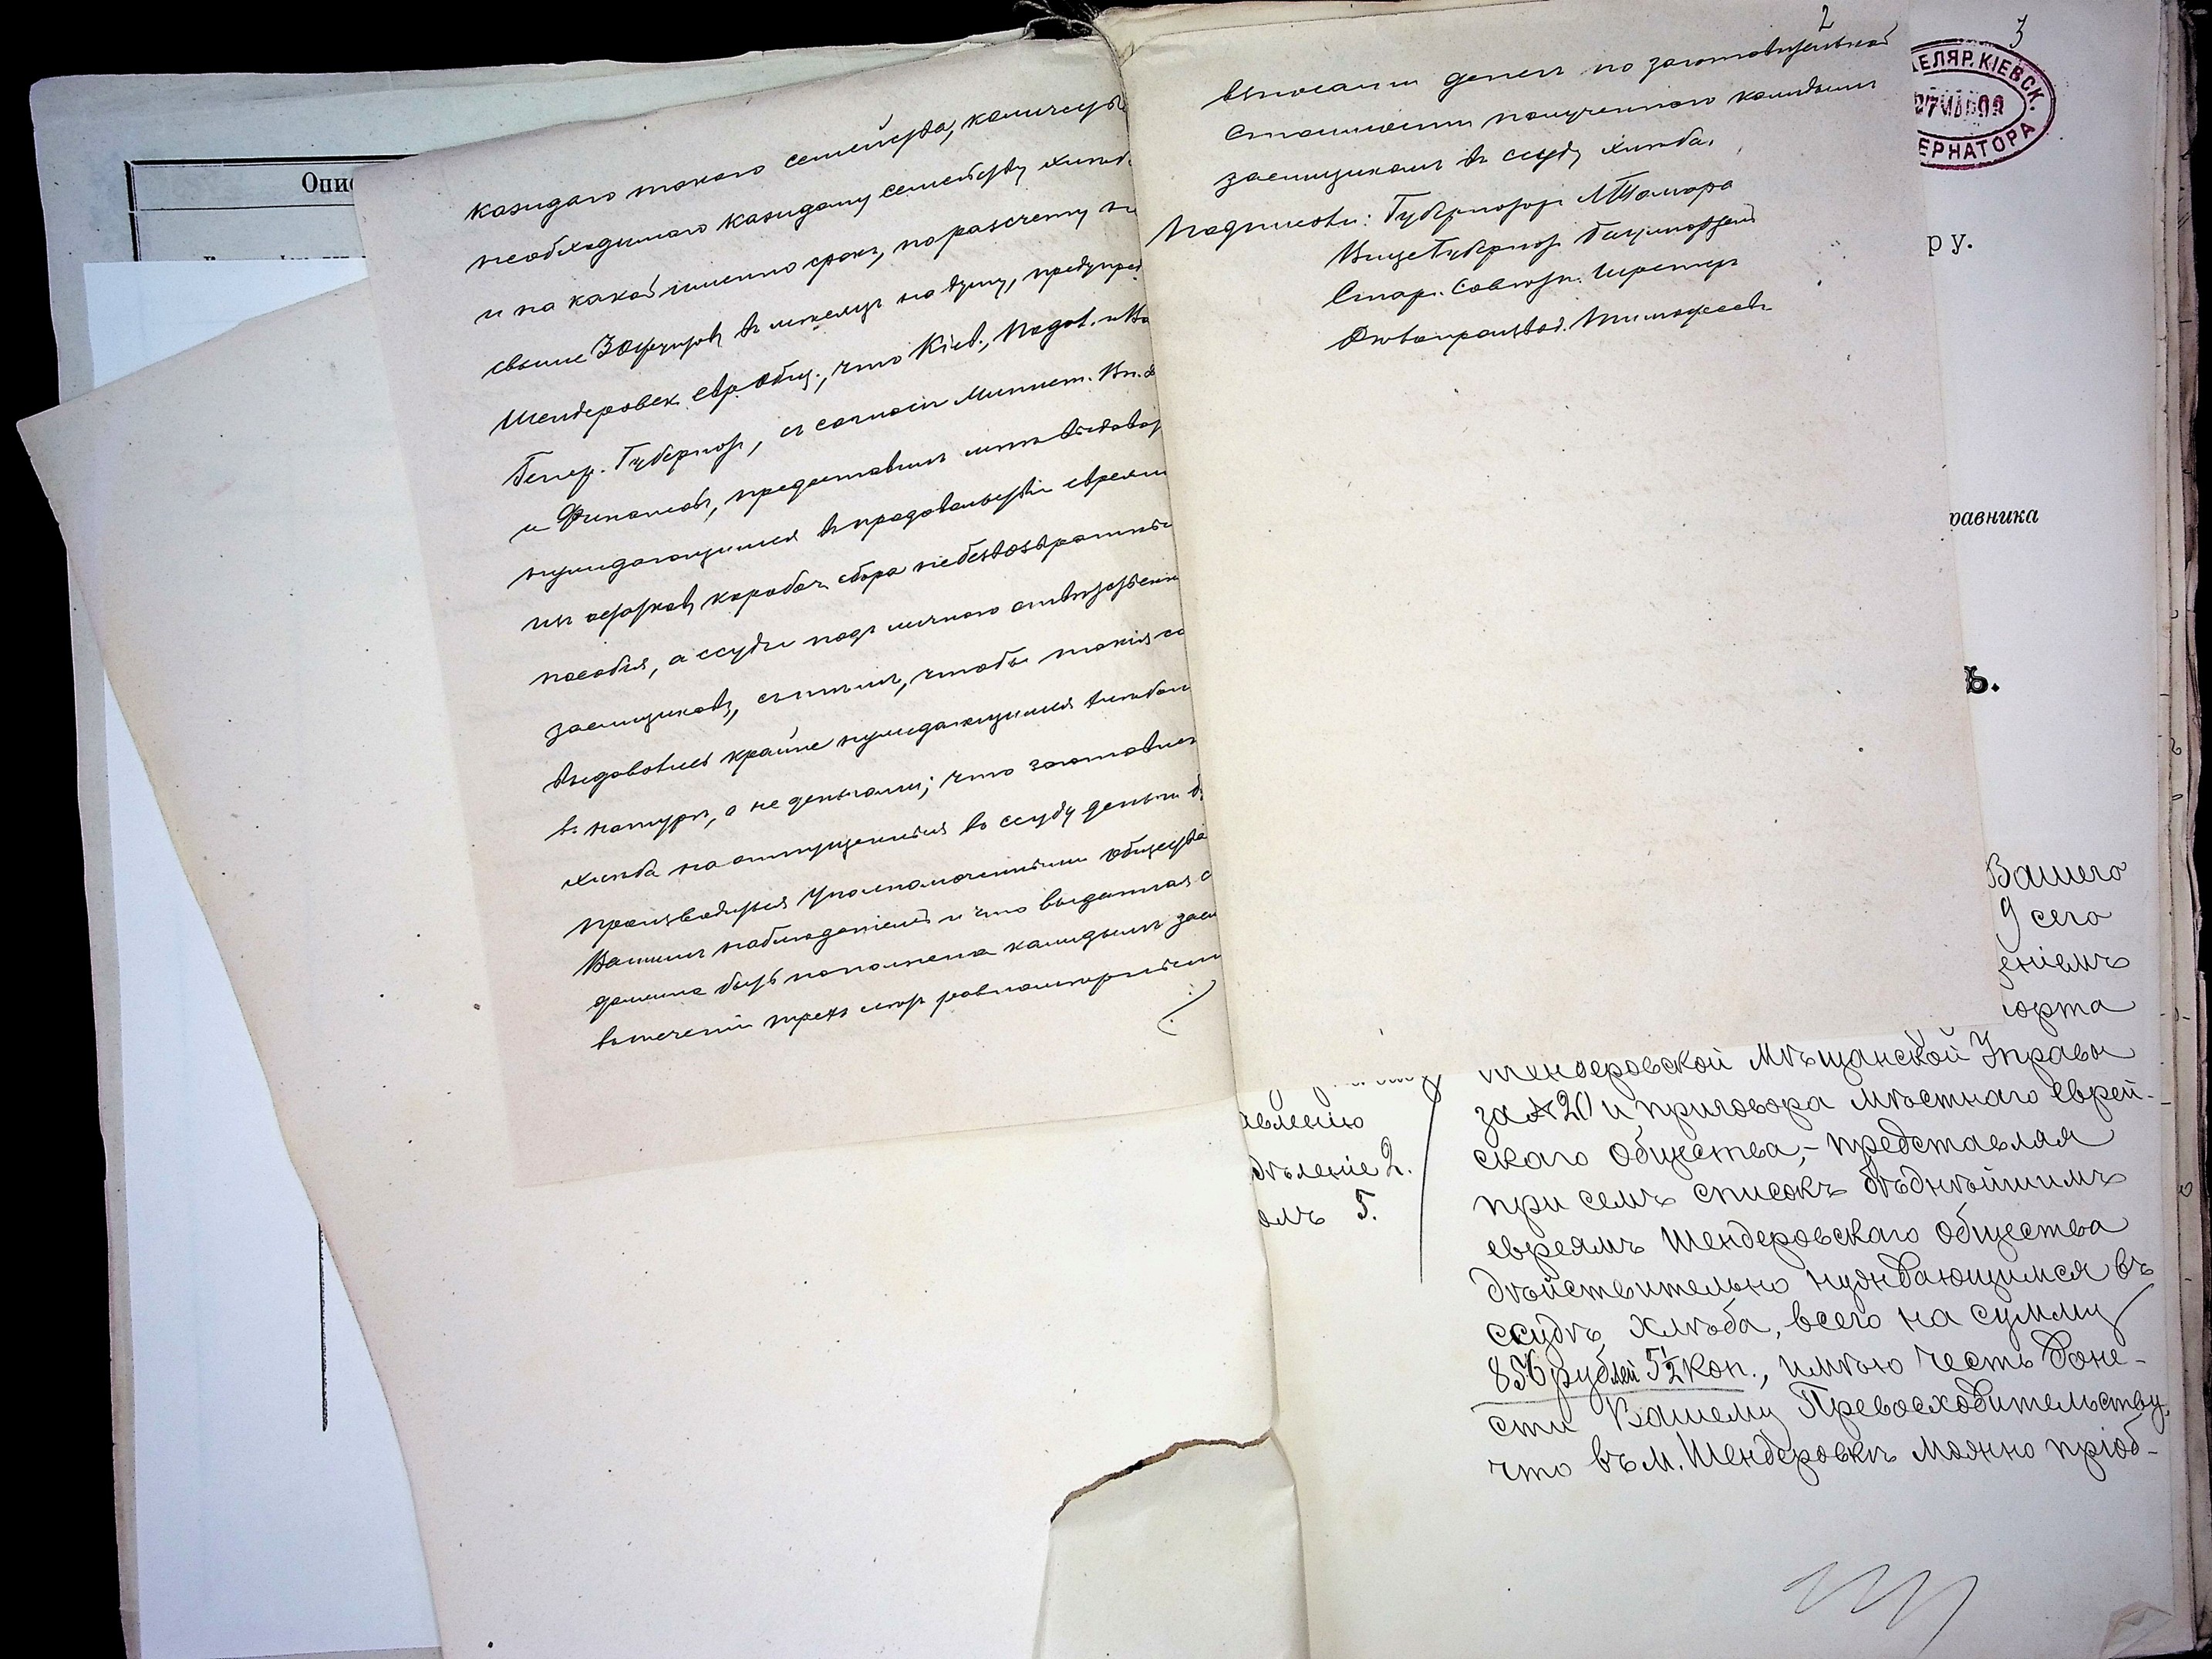 Опис
каждаго такого семейства, количеств
необходимаго каждому семейству хлеба
и на какой именно срокъ, по разсчету не
свыше 30 фунтовъ въ месяцъ на душу, предупред
Шендеровск. евр. общ., что Кіев., Подол. и Во
Генер. Губернат., съ соглас. Минист. Вн. д
и Финансовъ, предоставилъ мне выдават
нуждающимся въ продовольствіи евреям
изъ остатковъ коробоч. сбора не безвозвратныя
пособія, а ссуды подъ личною ответственн
заемщиковъ, съ темъ, чтобы такія сс
выдавались крайне нуждающимся хлебом
въ натуре, а не деньгами; что заготовлен
хлеба на отпущенныя въ ссуду деньги д.
производиться уполномоченными общества
Вашимъ наблюденіемъ и что выданная с
должна быть пополнена каждымъ заем
въ теченіи трехъ летъ равномерными
2
взносами денегъ по заготовительной
стоимости полученнаго каждымъ
заемщикомъ въ ссуду хлеба.
Подписали: Губернаторъ Л Томара
Вице Губернат.
Стар. Советн.
Делопроизвод. Тимофеевъ
3
ЕЛЯР. КІЕВСК.
ЕРНАТОРА
ру.
равника
ъ.
Вашего
9 сего
еніемъ
порта
Шендеровской Мѣщанской Управы
за № 20 и приговора мѣстнаго Еврей-
скаго Общества,- представляя
при семъ списокъ бѣднѣйшимъ
евреямъ Шендеровскаго общества
дѣйствительно нуждающимся въ
ссудѣ хлѣба, всего на сумму
856 рублей 5½ коп., имѣю честь доне-
сти Вашему Превосходительству,
что въ м. Шендеровкѣ можно пріоб-
авленію
дѣленіе 2.
олъ 5.